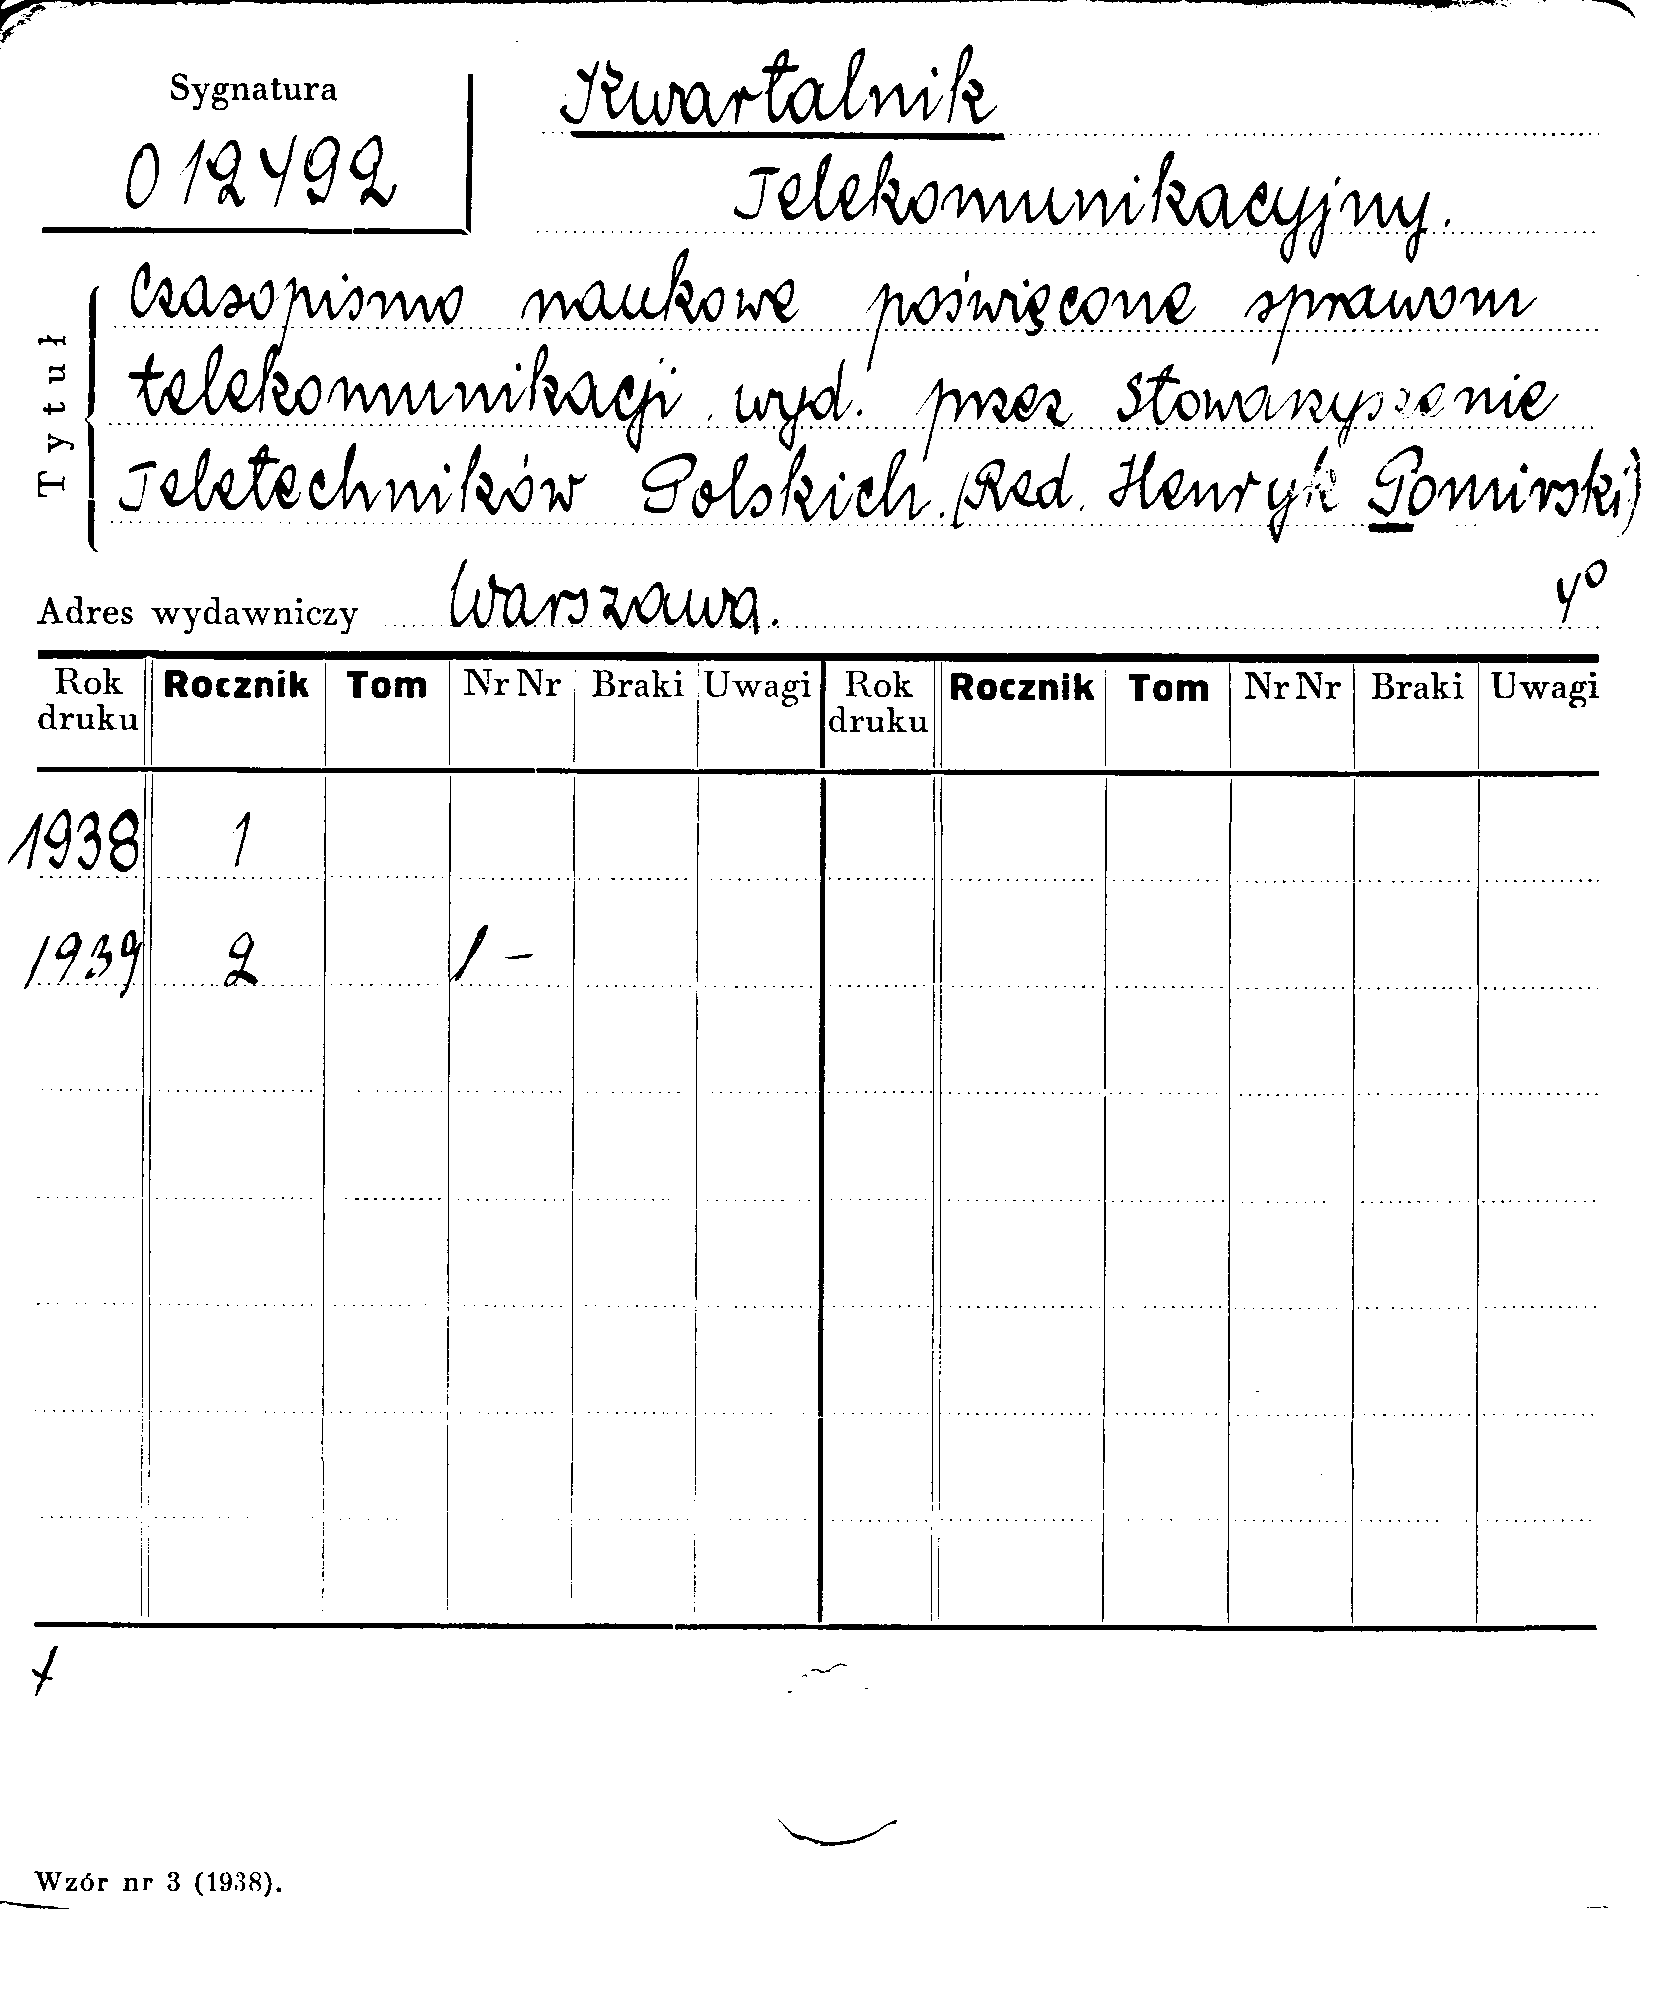 Sygnatura
012492
Kwartalnik
Telekomunikacyjny.
Tytuł
Czasopismo naukowe poświęcone sprawom
telekomunikacji wyd. przez Stowarzyszenie
Teletechników Polskich. (Red. Henryk Pomirski)
Adres wydawniczy Warszawa. 4⁰
Rok druku Rocznik Tom Nr Nr Braki Uwagi Rok druku Rocznik Tom Nr Nr Braki Uwagi
1938 1
1939 2 1 -
Wzór nr 3 (1938).